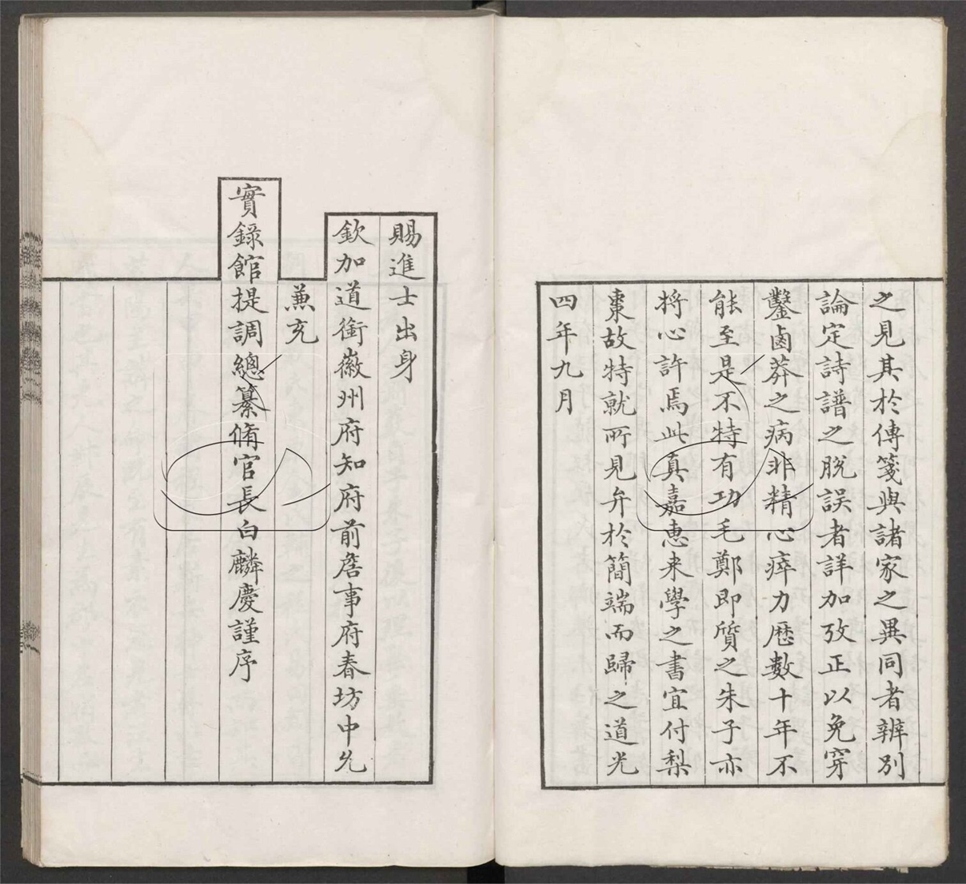 之見其於傳箋與諸家之異同者辨別
論定詩譜之脫誤者詳加攷正以免穿
鑿鹵莽之病非精心瘁力歷數十年不
能至是不特有功毛鄭即質之朱子亦
將心許焉此真嘉惠来學之書宜付梨
棗故特就所見弁於簡端而歸之道光
四年九月
賜進士出身
欽加道銜徽州府知府前詹事府春坊中允
兼充
實錄館提調總纂脩官長白麟慶謹序